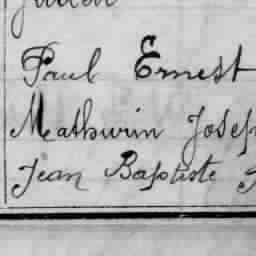 Paul Ernest
Mathurin Josep
Jean Baptiste